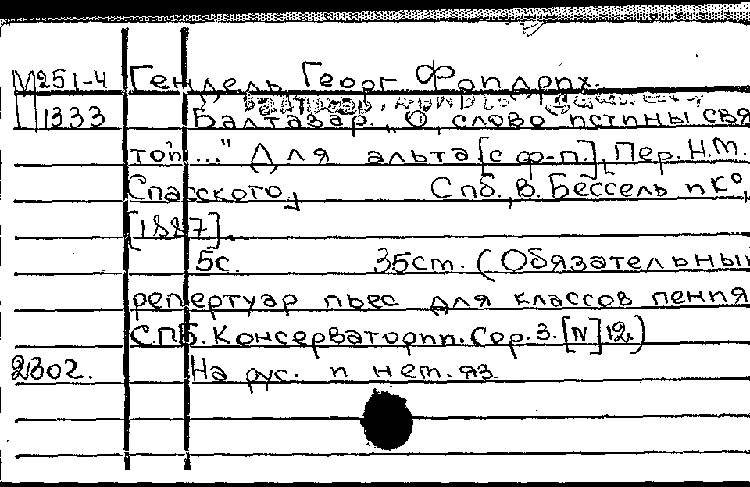 М251-4 Гендель, Георг Фридрих.
1333 Балтазар. „О, слово истины свя
той..." Для альта [с ф-п.], [Пер. Н.М.
Спасского.] Спб., В. Бессель и К°,
[1887].
5с. 35см. (Обязательный
репертуар пьес для классов пения
С.ПБ. Консерватории. Сер. 3. [N] 12.)
2302. На рус. и нем. яз.